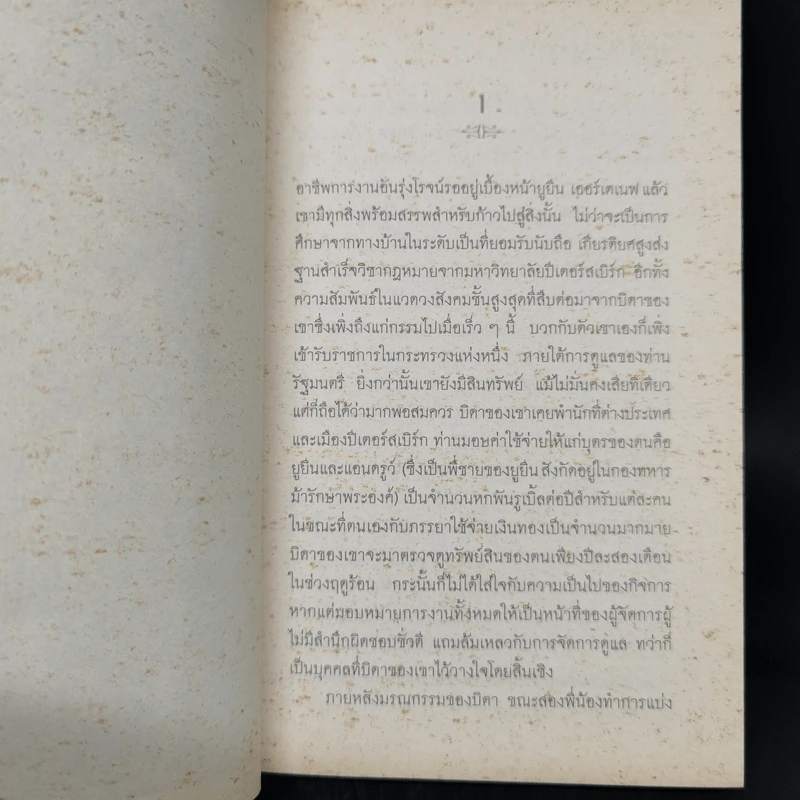 1
อาชีพการงานอันรุ่งโรจน์รออยู่เบื้องหน้ายูยีน เออร์เตเนฟ แล้ว
เขามีทุกสิ่งพร้อมสรรพสำหรับก้าวไปสู่สิ่งนั้น ไม่ว่าจะเป็นการ
ศึกษาจากทางบ้านในระดับเป็นที่ยอมรับนับถือ เกียรติยศสูงส่ง
ฐานสำเร็จวิชากฎหมายจากมหาวิทยาลัยปีเตอร์สเบิร์ก อีกทั้ง
ความสัมพันธ์ในแวดวงสังคมชั้นสูงสุดที่สืบต่อมาจากบิดาของ
เขาซึ่งเพิ่งถึงแก่กรรมไปเมื่อเร็ว ๆ นี้ บวกกับตัวเขาเองก็เพิ่ง
เข้ารับราชการในกระทรวงแห่งหนึ่ง ภายใต้การดูแลของท่าน
รัฐมนตรี ยิ่งกว่านั้นเขายังมีสินทรัพย์ แม้ไม่มั่นคงเสียทีเดียว
แต่ก็ถือได้ว่ามากพอสมควร บิดาของเขาเคยพำนักที่ต่างประเทศ
และเมืองปีเตอร์สเบิร์ก ท่านมอบค่าใช้จ่ายให้แก่บุตรของตนคือ
ยูยีนและแอนดรูว์ (ซึ่งเป็นพี่ชายของยูยีน สังกัดอยู่ในกองทหาร
ม้ารักษาพระองค์) เป็นจำนวนหกพันรูเบิ้ลต่อปีสำหรับแต่ละคน
ในขณะที่ตนเองกับภรรยาใช้จ่ายเงินทองเป็นจำนวนมากมาย
บิดาของเขาจะมาตรวจดูทรัพย์สินของตนเพียงปีละสองเดือน
ในช่วงฤดูร้อน กระนั้นก็ไม่ได้ใส่ใจกับความเป็นไปของกิจการ
หากแต่มอบหมายการงานทั้งหมดให้เป็นหน้าที่ของผู้จัดการผู้
ไม่มีสำนึกผิดชอบชั่วดี แถมล้มเหลวกับการจัดการดูแล ทว่าก็
เป็นบุคคลที่บิดาของเขาไว้วางใจโดยสิ้นเชิง
ภายหลังมรณกรรมของบิดา ขณะสองพี่น้องทำการแบ่ง